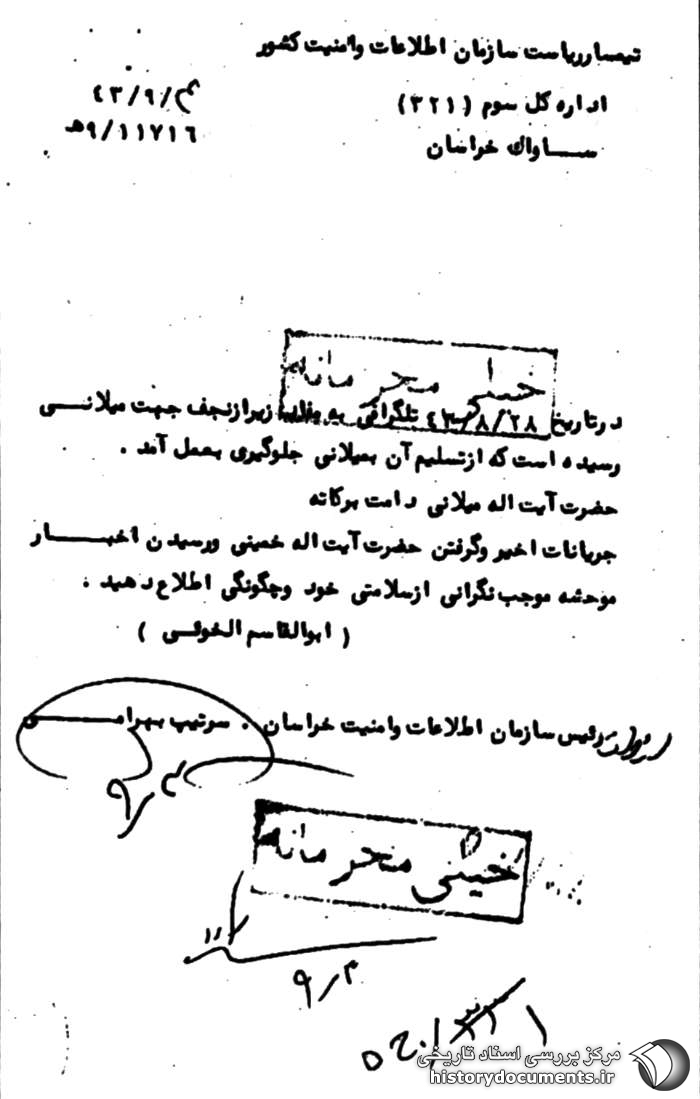 تیمسار ریاست سازمان اطلاعات و امنیت کشور
اداره کل سوم (۳۲۱)
ساواک خراسان
۴۳/۹/۳
۹/۱۱۷۱۶هـ
خیلی محرمانه
در تاریخ ۴۳/۸/۲۸ تلگرافی به مفاد زیر از نجف جهت میلانی
رسیده است که از تسلیم آن بمیلانی جلوگیری بعمل آمد .
حضرت آیت اله میلانی دامت برکاته
جریانات اخیر و گرفتن حضرت آیت اله خمینی و رسیدن اخبار
موحشه موجب نگرانی از سلامتی خود و چگونگی اطلاع دهید .
( ابوالقاسم الخوئی )
رئیس سازمان اطلاعات و امنیت خراسان . سرتیپ بهرامی
۹/۳
خیلی محرمانه
۹/۳
مرکز بررسی اسناد تاریخی
historydocuments.ir